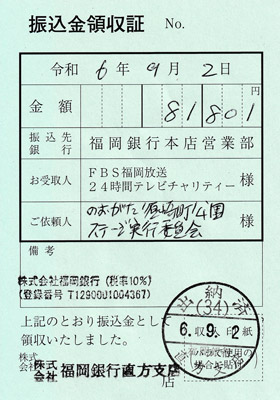 振込金領収証 No.
令和 6年 9月 2日
金額 81801 円
振込先銀行 福岡銀行本店営業部
お受取人 FBS福岡放送 様
24時間テレビチャリティー
ご依頼人 のおがた 町公園 様
ステージ実行委員会
備考
株式会社福岡銀行 (税率10%)
(登録番号 T1290001004367)
上記のとおり振込金とし
領収いたしました。
株式会社 福岡銀行直方支店
出納済
(34)
6. 9. 2
収 印紙